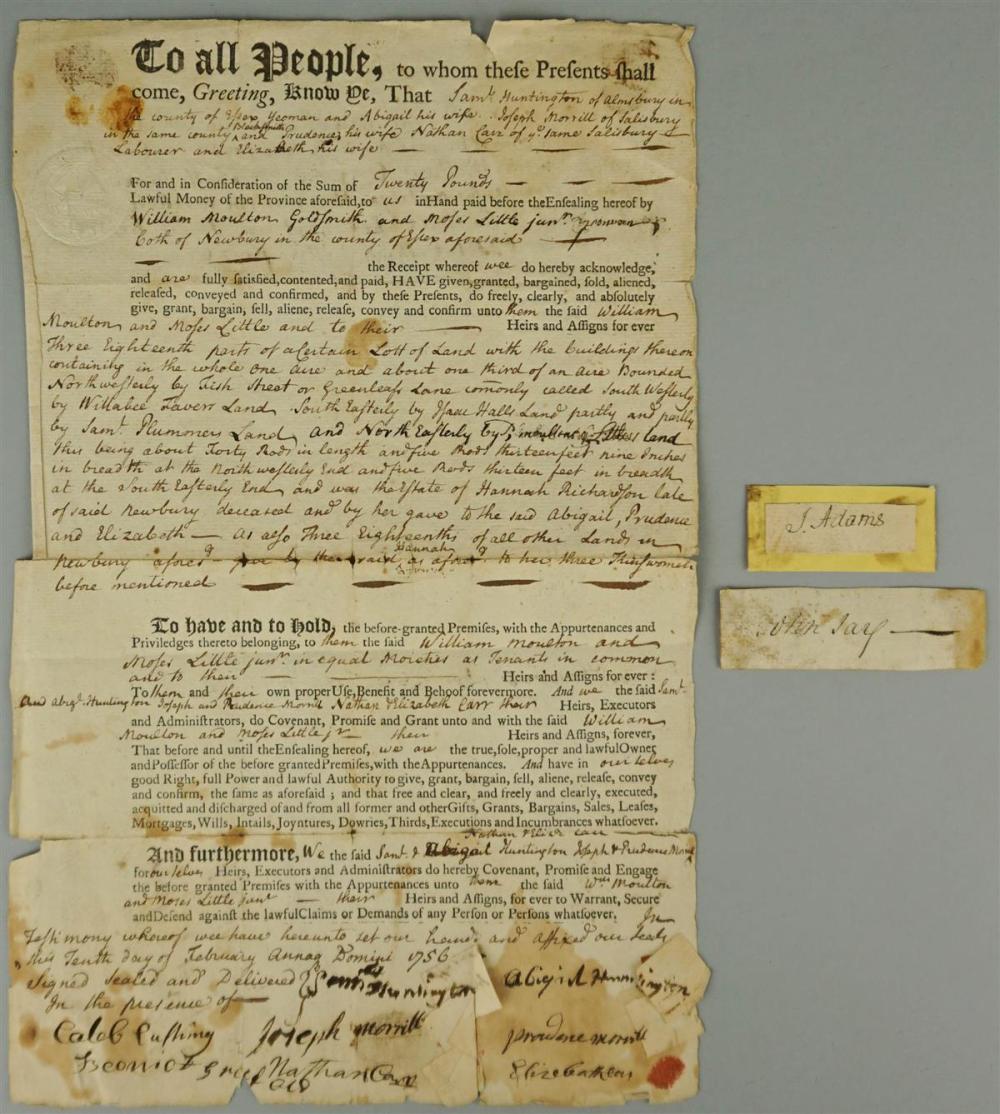 To all People, to whom theſe Preſents ſhall
come, Greeting, Know Ye, That Samll Huntington of Almsbury in
the county of Eſſex Yeoman and Abigail his wife Joseph Morrill of Salesbury
in the same county Blacksmith and Prudence his wife Nathan Carr of ye same Salisbury
Labourer and Elizabeth his wife
For and in Conſideration of the Sum of Twenty Pounds
Lawful Money of the Province aforeſaid, to us in Hand paid before the Enſealing hereof by
William Moulton Goldsmith and Moſes Little junr
both of Newbury in the county of Eſſex aforesaid
the Receipt whereof wee do hereby acknowledge,
and are fully ſatisfied, contented, and paid, HAVE given, granted, bargained, ſold, aliened,
releaſed, conveyed and confirmed, and by theſe Preſents, do freely, clearly, and abſolutely
give, grant, bargain, ſell, aliene, releaſe, convey and confirm unto them the said William
Moulton and Moſes Little and to their Heirs and Aſſigns for ever
Three Eighteenth parts of a Certain Lott of Land with the buildings thereon
containing in the whole one acre and about one third of an acre Bounded
Northweſterly by Fish Street or Greenleafs Lane comonly called South Weſterly
by Land South Eaſterly by Iſaac Halls Land partly and partly
by Saml Plummers Land and North Eaſterly by land
this being about Forty Rods in length and five Rods thirteen feet nine Inches
in breadth at the North weſterly End and five Rods thirteen feet in breadth
at the South Eaſterly End and was the Eſtate of Hannah Richardſon late
of said Newbury deceased and by her gave to the said Abigail, Prudence
and Elizabeth as alſo Three Eighteenths of all other Lands in
Newbury afores'd by the said Hannah as afores'd to her three
before mentioned
To have and to hold, the before-granted Premiſes, with the Appurtenances and
Priviledges thereto belonging, to them the said William Moulton and
Moſes Little junr in equal Moieties as Tenants in common
and to their Heirs and Aſſigns for ever:
To them and their own proper Uſe, Benefit and Behoof forevermore. And we the said Saml
and Abigl Huntington Joseph and Prudence Morril Nathan & Elizabeth Carr their Heirs, Executors
and Adminiſtrators, do Covenant, Promiſe and Grant unto and with the said William
Moulton and Moſes Little jr their Heirs and Aſſigns, forever,
That before and until the Enſealing hereof, we are the true, ſole, proper and lawful Owner
and Poſſeſſor of the before granted Premiſes, with the Appurtenances. And have in our selves
good Right, full Power and lawful Authority to give, grant, bargain, ſell, aliene, releaſe, convey
and confirm, the ſame as aforeſaid; and that free and clear, and freely and clearly, executed,
acquitted and diſcharged of and from all former and other Gifts, Grants, Bargains, Sales, Leaſes,
Mortgages, Wills, Intails, Joyntures, Dowries, Thirds, Executions and Incumbrances whatſoever.
Nathan & Eliz Carr
And furthermore, We the said Saml & Abigail Huntington Joseph & Prudence Morril
for our selves Heirs, Executors and Adminiſtrators do hereby Covenant, Promiſe and Engage
the before granted Premiſes with the Appurtenances unto them the said Wm Moulton
and Moſes Little junr their Heirs and Aſſigns, for ever to Warrant, Secure
and Defend againſt the lawful Claims or Demands of any Perſon or Perſons whatſoever. In
Teſtimony whereof wee have hereunto set our hands and affixed our seals
this Tenth day of February Annoq Domini 1756
Signed Sealed and Delivered
In the presence of
Samll Huntington
Abigil Hunnington
Caleb Cuſhing
Joseph morrill
prudence morrill
Nathan Carr
Elizebath Carr
J. Adams
John Jay